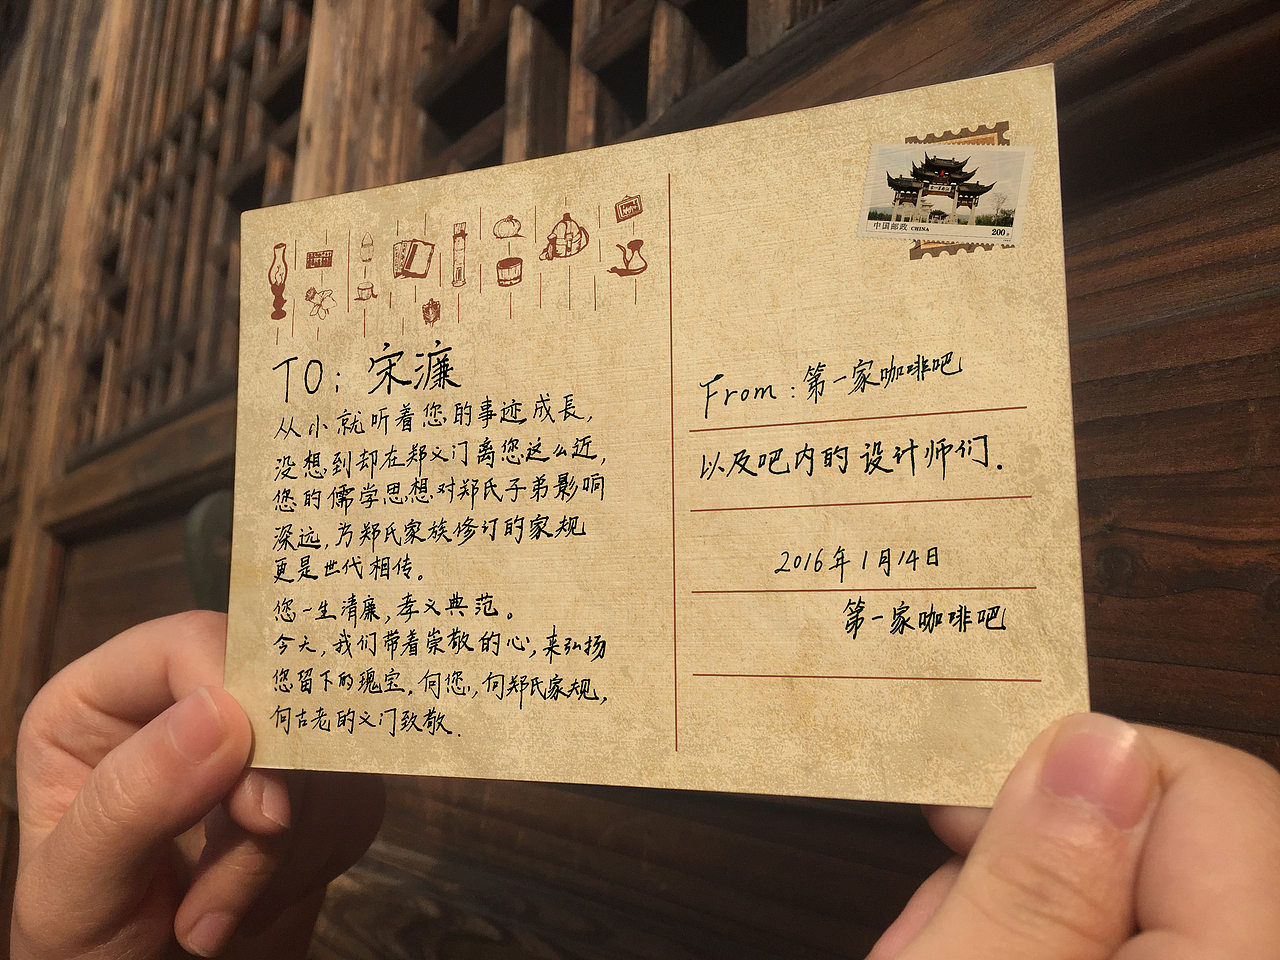 TO：宋濂
从小就听着您的事迹成長，
没想到却在郑义门离您这么近，
您的儒学思想对郑氏子弟影响
深远，为郑氏家族修订的家规
更是世代相传。
您一生清廉，孝义典范。
今天，我们带着崇敬的心，来弘扬
您留下的瑰宝。向您，向郑氏家规，
向古老的义门致敬.
中国邮政 CHINA 200分
From：第一家咖啡吧
以及吧内的设计师们.
2016年1月14日
第一家咖啡吧